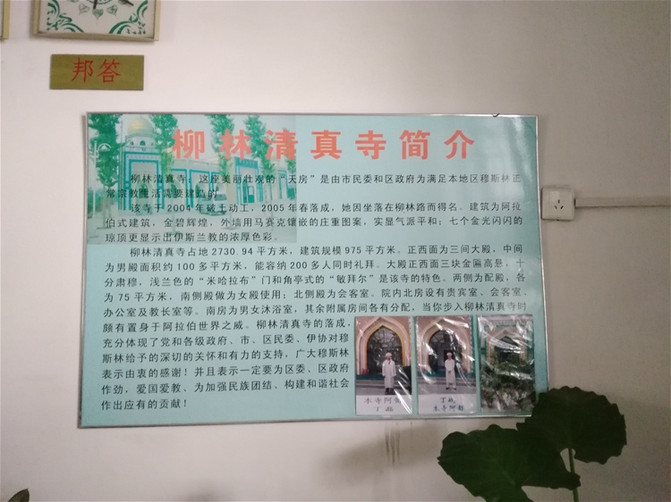 邦答
柳林清真寺简介
柳林清真寺，这座美丽壮观的“天房”是由市民委和区政府为满足本地区穆斯林正
常宗教生活需要建造的。
该寺于2004年破土动工，2005年春落成，她因坐落在柳林路而得名。建筑为阿拉
伯式建筑，金碧辉煌，外墙用马赛克镶嵌的庄重图案，实显气派平和；七个金光闪闪的
琼顶更显示出伊斯兰教的浓厚色彩。
柳林清真寺占地2730.94平方米，建筑规模975平方米。正西面为三间大殿，中间
为男殿面积约100多平方米，能容纳200多人同时礼拜。大殿正西面三块金匾高悬，十
分肃穆，浅兰色的“米哈拉布”门和角亭式的“敏拜尔”是该寺的特色。两侧为配殿，各
为75平方米，南侧殿做为女殿使用；北侧殿为会客室。院内北房设有贵宾室、会客室、
办公室及教长室等。南房为男女沐浴室，其余附属房间各有分配，当你步入柳林清真寺时
颇有置身于阿拉伯世界之威。柳林清真寺的落成，
充分体现了党和各级政府、市、区民委、伊协对穆
斯林给予的深切的关怀和有力的支持，广大穆斯林
表示由衷的感谢！并且表示一定要为区委、区政府
作劲，爱国爱教、为加强民族团结、构建和谐社会
作出应有的贡献！
本寺阿
丁